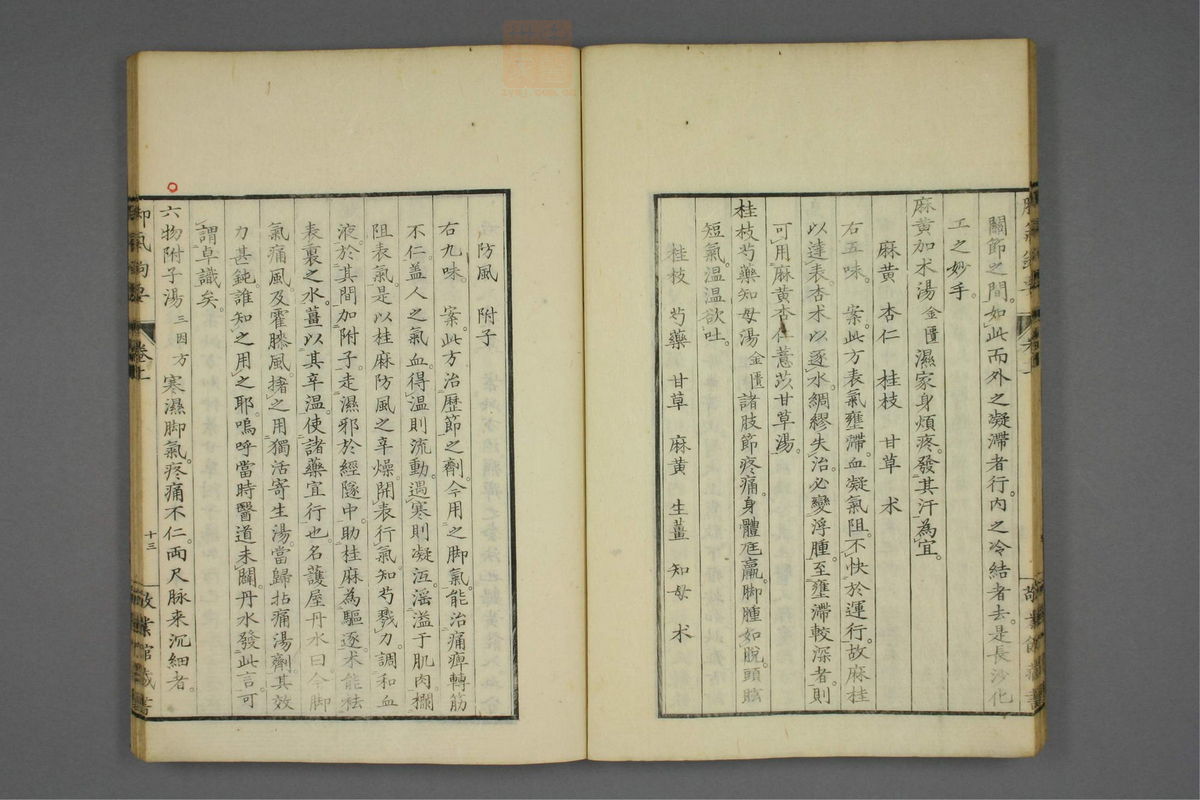 關節之間。如此而外之凝滯者行。内之冷結者去。是長沙化
工之妙手。
麻黄加术湯 金匱 濕家身煩疼。發其汗為宜。
麻黄 杏仁 桂枝 甘草 术
右五味。 案。此方表氣壅滯。血凝氣阻。不快於運行。故麻桂
以達表。杏术以逐水。綢繆失治。必變浮腫。至壅滯較深者。則
可用麻黄杏仁薏苡甘草湯。
桂枝芍藥知母湯 金匱 諸肢節疼痛。身體尫羸。脚腫如脫。頭眩
短氣。温温欲吐。
桂枝 芍藥 甘草 麻黄 生薑 知母 术
防風 附子
右九味。 案。此方治歷節之劑。今用之脚氣。能治痛痺轉筋
不仁。蓋人之氣血。得温則流動。遇寒則凝沍。滛溢于肌肉。擱
阻表氣。是以桂麻防風之辛燥。開表行氣。知芍戮力。調和血
液。於其間加附子。走濕邪於經隧中。助桂麻為驅逐。术能祛
表裏之水。薑以其辛温。使諸藥宜行也。名護屋丹水曰。今脚
氣痛風及霍膝風。撦之用獨活寄生湯。當歸拈痛湯。劑其效
力甚鈍。誰知之用之耶。嗚呼當時醫道未闢。丹水發此言。可
謂卓識矣。
六物附子湯 三因方 寒濕脚氣。疼痛不仁。兩尺脉來沉細者。
脚氣鉤要
卷上
十三
敬業館藏書